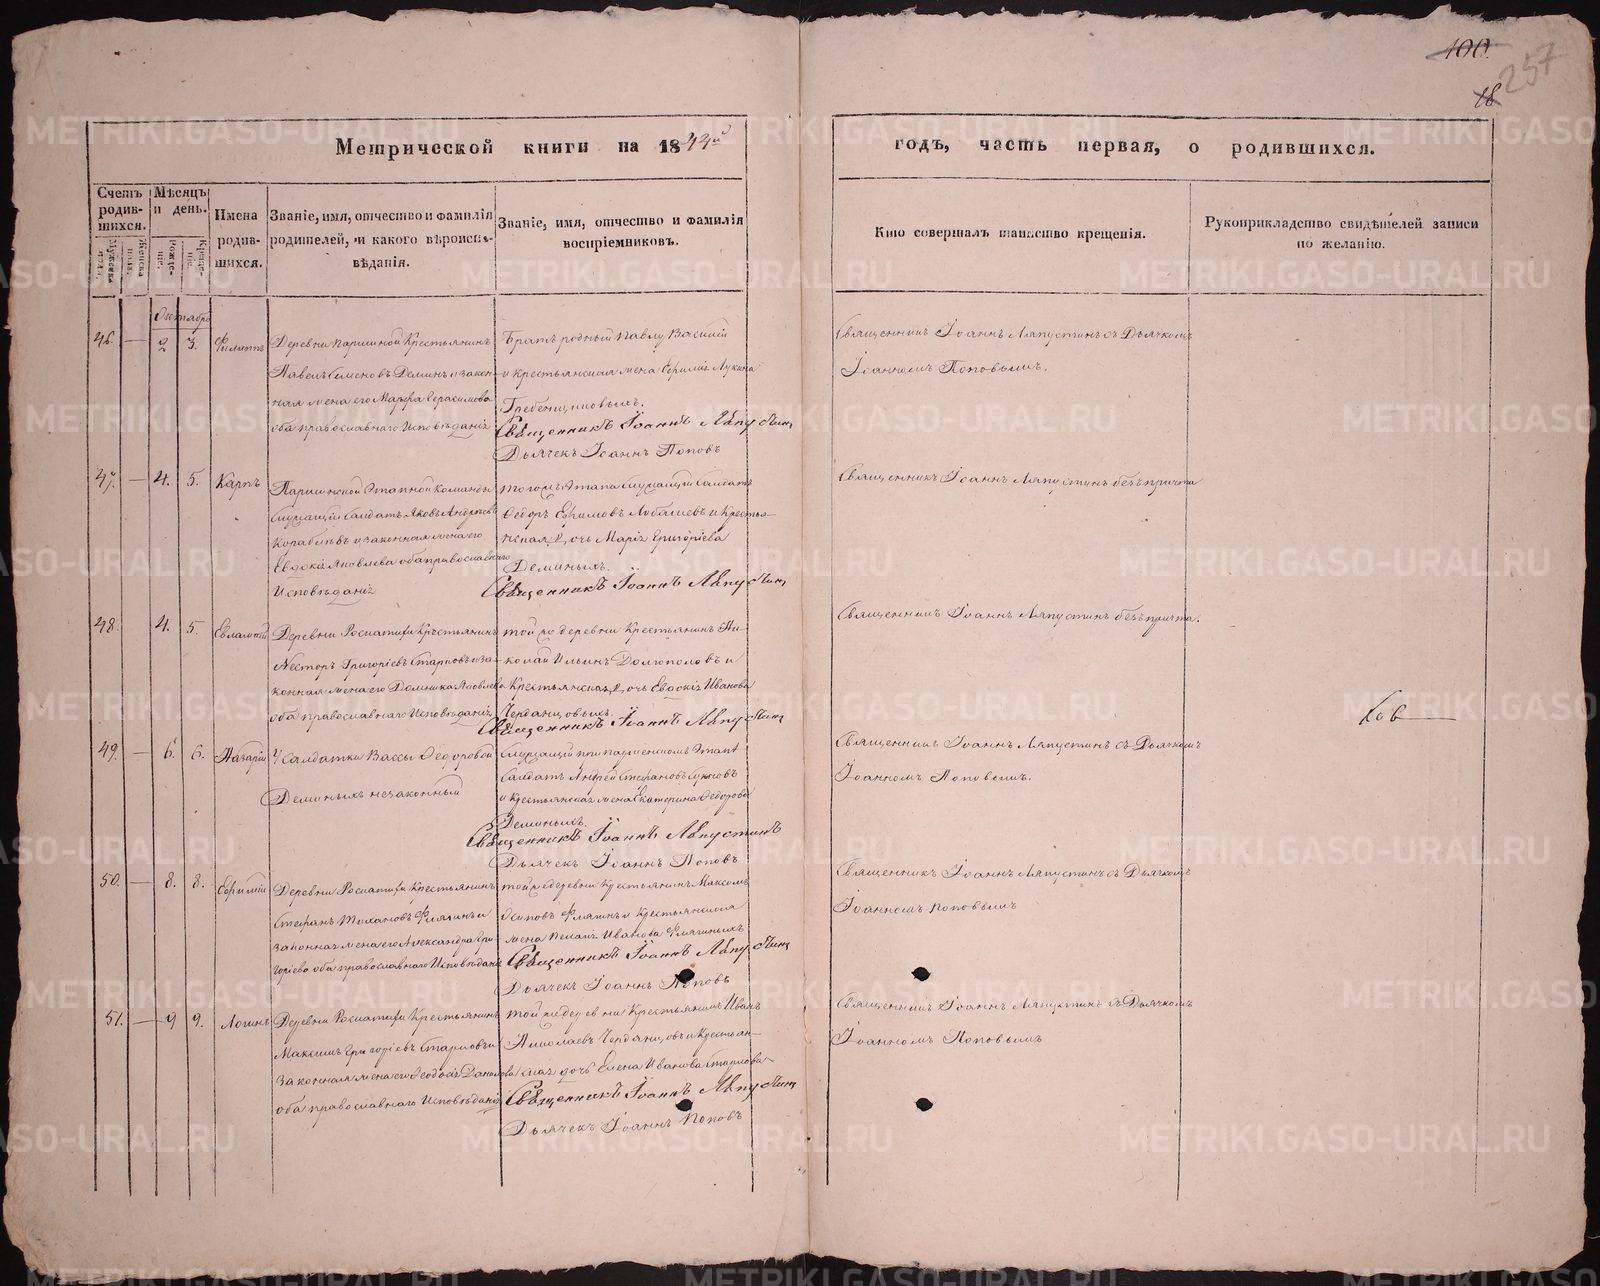 100.
257
18
Метрической книги на 1844й
годъ, часть первая, о родившихся.
Счетъ родив-шихся.
Мѣсяцъ и день.
Имена родив-шихся.
Званіе, имя, отчество и фамилія родителей, и какого вѣроиспо-вѣданія.
Званіе, имя, отчество и фамилія воспріемниковъ.
Кто совершалъ таинство крещенія.
Рукоприкладство свидѣтелей записи по желанію.
Мужеска пола.
Женска пола.
Рожде-ніе.
Креще-ніе.
Октября
46. — 2 3. Филиппъ
Деревни Крестьянинъ
Павелъ Семеновъ Деминъ и закон-
ная жена его Марфа Герасимова
оба православнаго Исповѣданія
Братъ родный Павлу Василій
и крестьянская жена Лукина
Гребенщиковыхъ.
Священникъ Іоаннъ Ляпустинъ
Дьячекъ Іоаннъ Поповъ
Священникъ Іоаннъ Ляпустинъ съ Дьячкомъ
Іоанномъ Поповымъ.
47. — 4. 5. Карпъ
Этапной Команды
служащій Солдатъ Яковъ Андреевъ
Кораблевъ и законная жена его
Евдокія Яковлева оба православнаго
Исповѣданія
тогожъ Этапа служащій Солдатъ
Федоръ Ефимовъ Лобашевъ и Крестья-
нская дочь Марія Григоріева
Деминыхъ.
Священникъ Іоаннъ Ляпустинъ
Священникъ Іоаннъ Ляпустинъ безъ причта
48. 4. 5. Евлампій
Деревни Крестьянинъ
Несторъ Григоріевъ Старковъ и за-
конная жена его Домника Яковлева
оба православнаго Исповѣданія
той же деревни Крестьянинъ Ни-
колай Ильинъ Долгополовъ и
Крестьянская дочь Евдокія Иванова
Черданцовыхъ.
Священникъ Іоаннъ Ляпустинъ
Священникъ Іоаннъ Ляпустинъ безъ причта.
49. — 6. 6. Назарій
у Солдатки Вассы Федоровой
Деминыхъ незаконный
Служащій при Этапѣ
Солдатъ Андрей Стефановъ
и Крестьянская жена Екатерина Федорова
Деминыхъ.
Священникъ Іоаннъ Ляпустинъ
Дьячекъ Іоаннъ Поповъ
Священникъ Іоаннъ Ляпустинъ съ Дьячкомъ
Іоанномъ Поповымъ.
50. — 8. 8. Ефимій
Деревни Крестьянинъ
Стефанъ Тихановъ Флягинъ и
законная жена его Александра Гри-
горіева оба православнаго Исповѣданія
той же деревни Крестьянинъ Максимъ
Осиповъ Флягинъ и Крестьянская
жена Иванова Флягиныхъ
Священникъ Іоаннъ Ляпустинъ
Дьячекъ Іоаннъ Поповъ
Священникъ Іоаннъ Ляпустинъ съ Дьячкомъ
Іоанномъ Поповымъ
51. — 9 9. Логинъ
Деревни Крестьянинъ
Максимъ Григоріевъ Старковъ и
законная жена его Феодосія Данилова
оба православнаго Исповѣданія
той же деревни Крестьянинъ Иванъ
Николаевъ Черданцовъ и Крестьян-
ская дочь Елена Иванова Старкова
Священникъ Іоаннъ Ляпустинъ
Дьячекъ Іоаннъ Поповъ
Священникъ Іоаннъ Ляпустинъ съ Дьячкомъ
Іоанномъ Поповымъ
METRIKI.GASO-URAL.RU